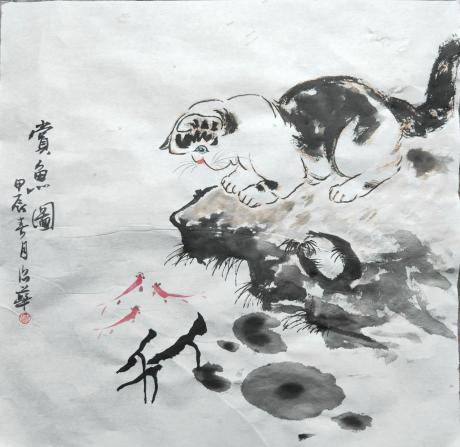 賞魚圖
甲辰春月治華